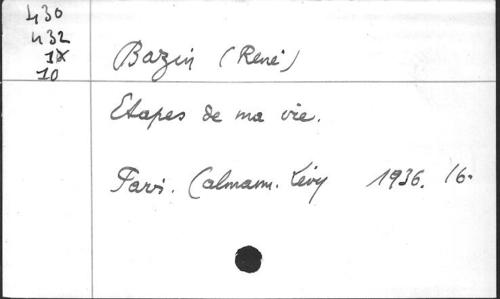 430
432
1X
10
Bazin (René)
Etapes de ma vie.
Paris. Calmann. Lévy 1936. 16.